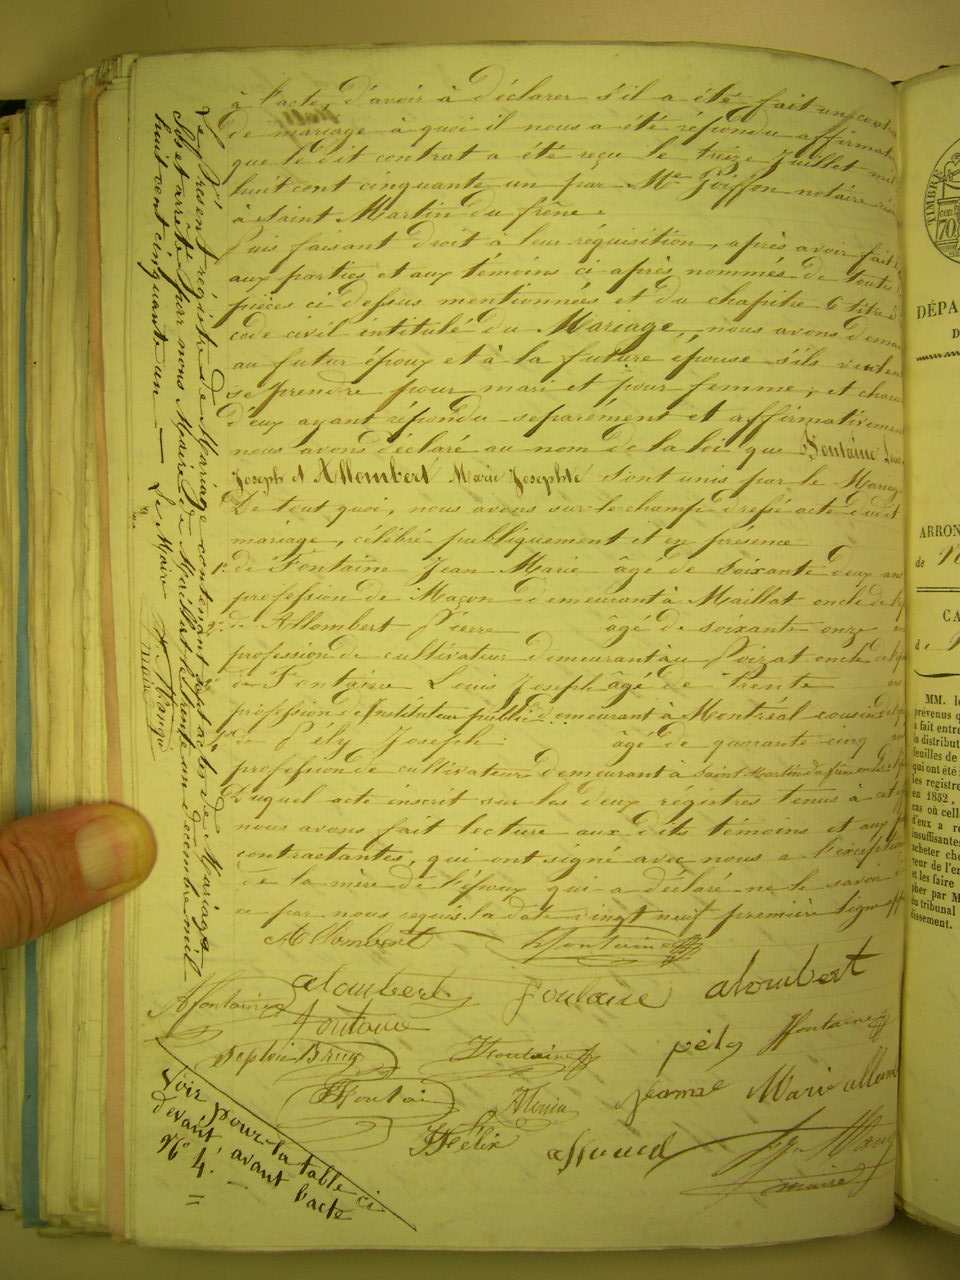 à l'acte, d'avoir à déclarer s'il a été fait un cont
de mariage à quoi il nous a été répondu affirmat
que le dit contrat a été reçu le treize Juillet mil
huit cent cinquante un par Me Goiffon notaire
à Saint Martin du frêne.
Puis faisant droit à leur réquisition, après avoir fait
aux parties et aux témoins ci après nommés de toutes
pièces ci dessus mentionnées et du chapitre 6 titre
code civil intitulé du Mariage, nous avons dema
au futur époux et à la future épouse s'ils veulent
se prendre pour mari et pour femme, et chacun
d'eux ayant répondu séparément et affirmativement
nous avons déclaré au nom de la loi que Fontaine Louis
Joseph et Allombert Marie Josephte sont unis par le Mariage
De tout quoi, nous avons sur-le-champ dressé acte dudit
mariage, célébré publiquement et en présence
1° de Fontaine Jean Marie âgé de soixante deux ans
profession de Maçon demeurant à Maillat oncle de
2° de Allombert Pierre âgé de soixante onze
profession de cultivateur demeurant au Poizat oncle de
de Fontaine Louis Joseph âgé de trente ans
profession d'Instituteur public demeurant à Montréal cousin
de Pély Joseph âgé de quarante cinq
profession de cultivateur demeurant à Saint Martin du frêne
Duquel acte inscrit sur les deux régistres tenus à cet
nous avons fait lecture aux dits témoins et aux p
contractantes, qui ont signé avec nous à l'exception
de la mère de l'époux qui a déclaré ne le savoir
ce par nous requis. la date vingt neuf première ligne
Allombert Fontaine
alombert foulaire alombert
Fontaine
fontaine
Fontaine pély Fontaine
Fontai Jeanne Marie allom
Félix
maire
Le présent régistre de Mariage contenant sept actes de Mariage
clos et arrêté par nous Maire de Maillat le trente un décembre mil
huit cent cinquante un — Le Maire
maire
Voir pour la table ci
devant avant l'acte
N° 4.
TIMBRE
70
DÉPA
D
ARRON
de
CA
de
MM. le
prévenus q
a fait entre
la distribut
feuilles de
qui ont été
les registre
en 1852,
cas où celle
d'eux a re
insuffisante
acheter che
teur de l'en
et les faire
pher par M
du tribunal
dissement.